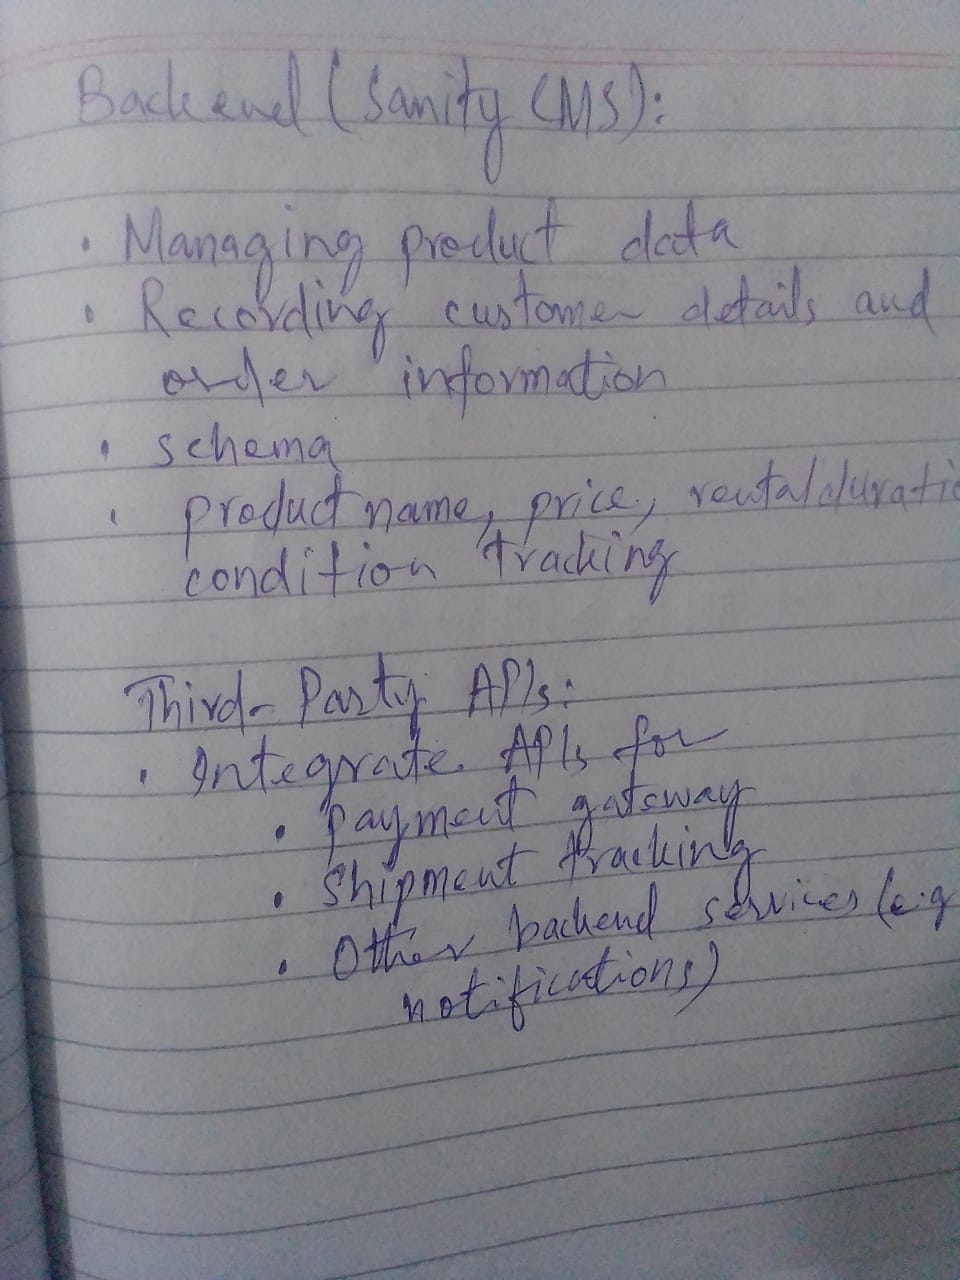 Backend (Sanity CMS):
• Managing product data
• Recording customer details and
order information
• schema
• product name, price, rental duratio
condition tracking
Third-Party APIs:
• Integrate APIs for
• payment gateway
• Shipment tracking
• Other backend services (e.g
notifications)